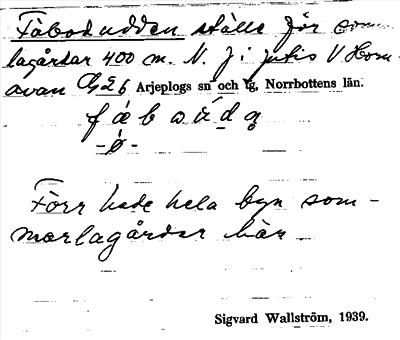 Fäbodudden ställe för som-
lagårdar 400 m. N. f i V Horn-
avan Gg26 Arjeplogs sn och tg, Norrbottens län.
-ø-
Förr hade hela byn som-
marlagårdar här
Sigvard Wallström, 1939.